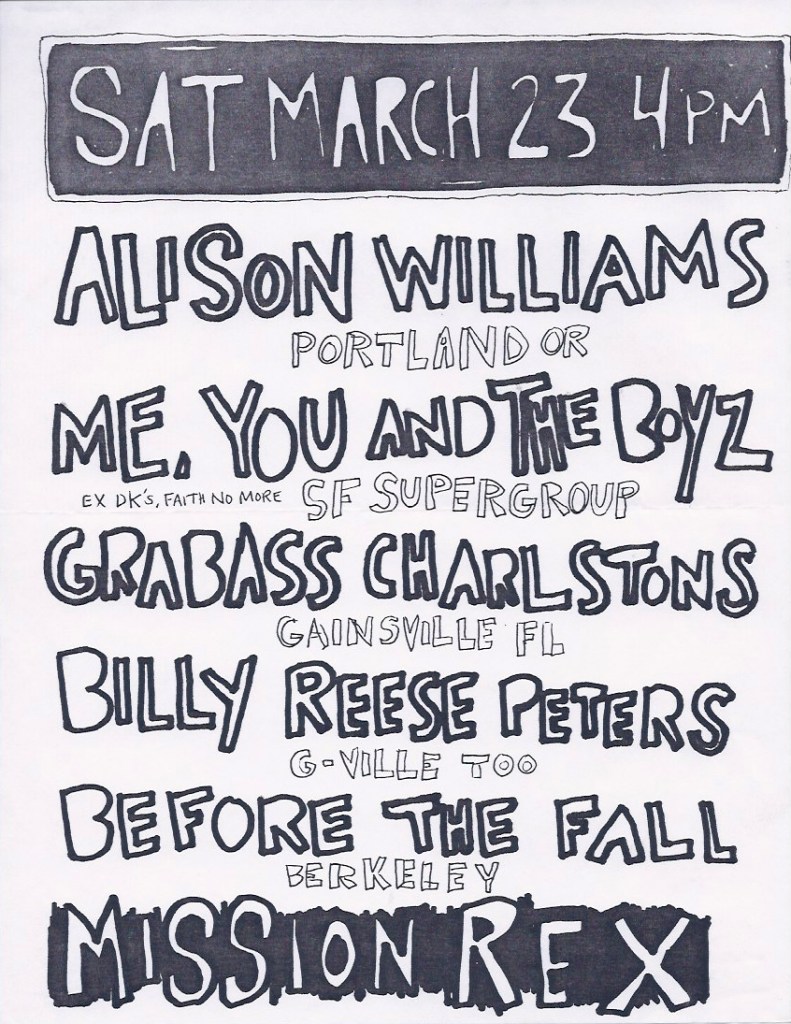 SAT MARCH 23 4PM
ALISON WILLIAMS
PORTLAND OR
ME, YOU AND THE BOYZ
EX DK'S, FAITH NO MORE SF SUPERGROUP
GRABASS CHARLSTONS
GAINSVILLE FL
BILLY REESE PETERS
G-VILLE TOO
BEFORE THE FALL
BERKELEY
MISSION REX